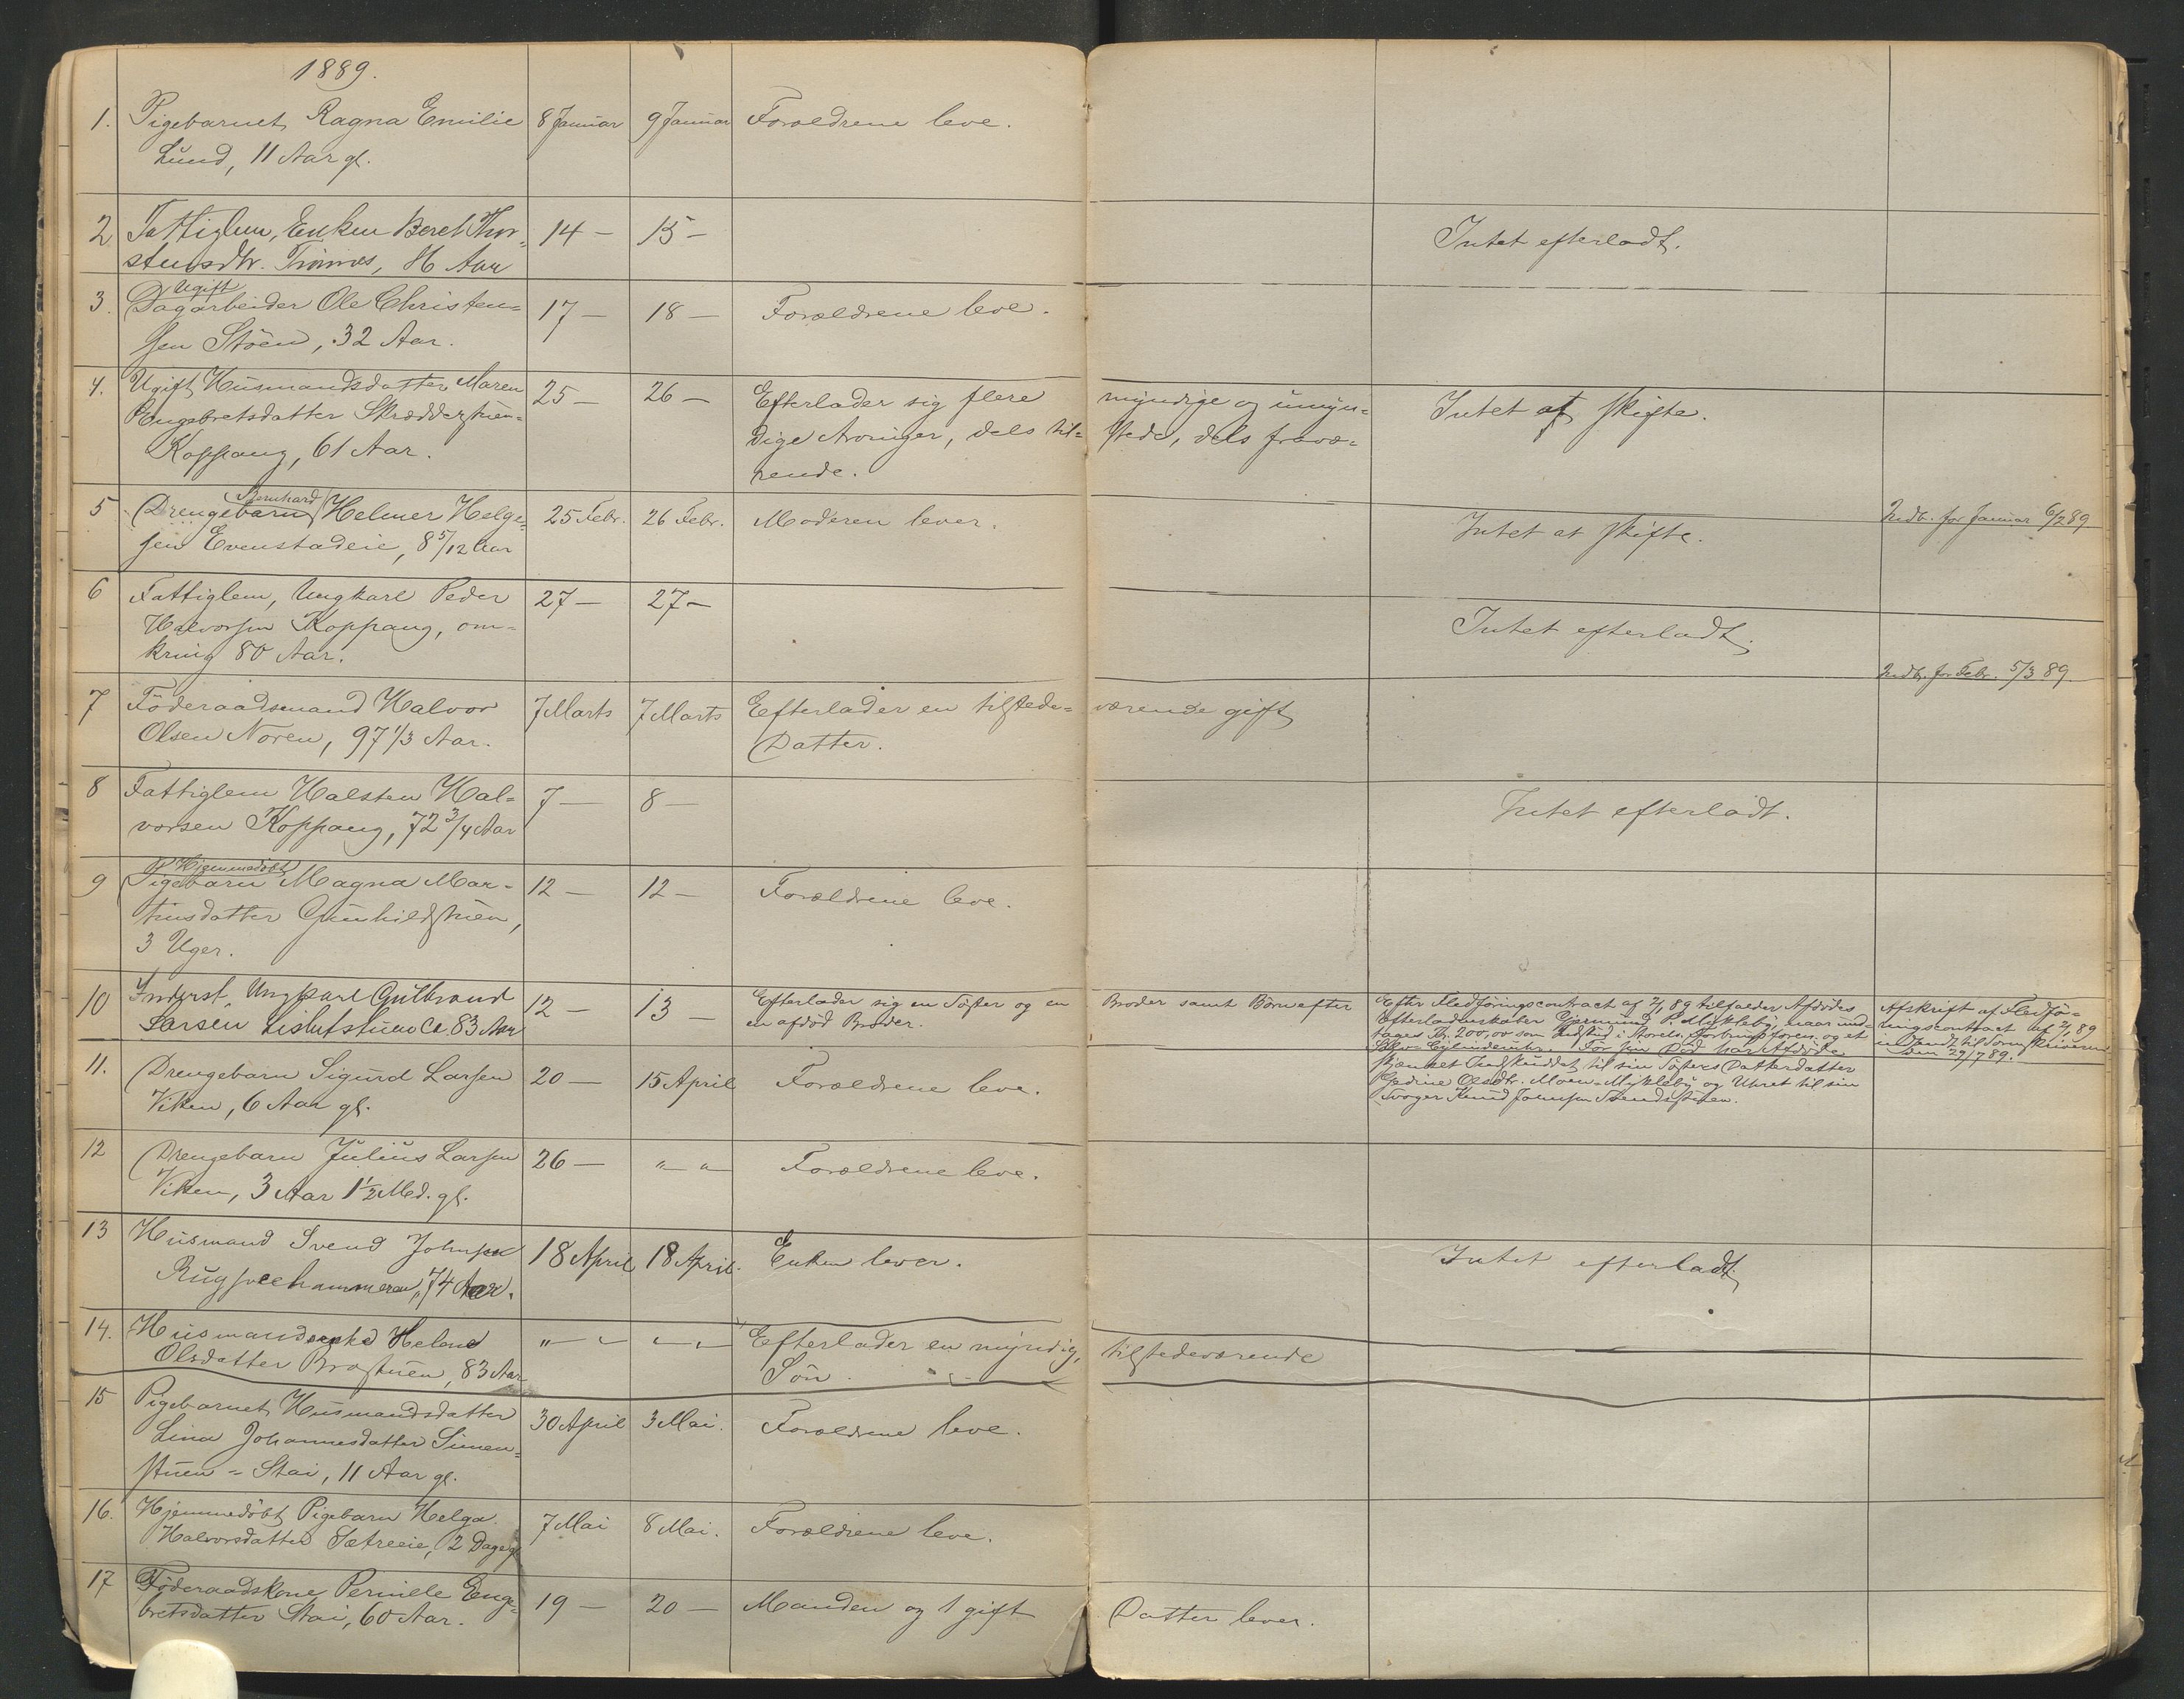 1889.
1. Pigebarnet Ragna Emilie 8 Januar 9 Januar Forældrene leve.
Lund, 11 Aar gl.
2 Fattiglem, Enken Beret Thor- 14 — 15 — Intet efterladt.
stensdtr. Aar
3. Ugift
Dagarbeider Ole Christen- 17 — 18 — Forældrene leve.
sen Stöen, 32 Aar.
4. Ugift Husmandsdatter Maren 25 — 26 — Efterlader sig flere myndige og umyn- Intet at skifte.
Engebretsdatter Skrædderstuen- dige Arvinger, dels til- stede, dels fravæ-
Koppang, 61 Aar. rende.
5 Bernhard
Drengebarn Helmer Helge- 25 Febr. 26 Febr. Moderen lever. Intet at skifte. Indb. for Januar 6/2 89
sen Evenstadeie, 8 5/12 Aar
6 Fattiglem, Ungkarl Peder 27 — 27 — Intet efterladt.
Halvorsen Koppang, om-
kring 80 Aar. Indb. for Febr. 5/3 89.
7 Föderaadsmand Halvor 7 Marts 7 Marts Eefterlader en tilstede- værende gift
Olsen Noren, 97 1/3 Aar. Datter.
8 Fattiglem Halsten Hal- 7 — 8 — Intet efterladt.
vorsen Koppang, 72 3/4 Aar
9 Hjemmedöbt
Pigebarn Magna Mar- 12 — 12 — Forældrene leve.
tinsdatter Gunhildstuen,
3 Uger.
10 Inderst, Ungkarl Gulbrand 12 — 13 — Efterlader sig en Söster og en Broder samt Börn efter
Larsen 83 Aar en afdöd Broder.
Efter Fledföringscontract af 2/1 89 tilfalder Afdödes
Efterladenskaber Gjermund P. Mykleby, naar und-
tages Kr. 200,00 som Indskud i Storelv. Forbrugsforen. og et
Sölv-Cylinderuhr. Før sin Död har Afdöde
skjænket Indskuddet til sin Sösters Datterdatter
Olsdtr. Moen-Mykleby og Uhret til sin
Svoger Knud Johnsen
Afskrift af Fledfö-
ringscontract af 2/1 89
indsendt til Sorenskriveren
den 29/7 89.
11. Drengebarn Sigurd Larsen 20 — 15 April Forældrene leve.
Viken, 6 Aar gl.
12 Drengebarn Julius Larsen 26 — " — " — Forældrene leve.
Viken, 3 Aar 1 1/2 Md. gl.
13 Husmand Svend Johnsen 18 April 18 April. Enken lever. Intet efterladt.
74 Aar.
14. Husmandsenke Helene " — " " — " Efterlader en myndig, tilstedeværende
Olsdatter Brostuen, 83 Aar Sön.
15 Pigebarnet Husmandsdatter 30 April 3 Mai. Forældrene leve.
Lina Johannesdatter Simen-
stuen - Stai, 11 Aar gl.
16. Hjemmedöbt Pigebarn Helga 7 Mai 8 Mai. Forældrene leve.
Halvorsdatter Sætreeie, 2 Dage gl.
17 Föderaadskone Pernille Enge- 19 — 20 — Manden og 1 gift Datter lever.
bretsdatter Stai, 60 Aar.